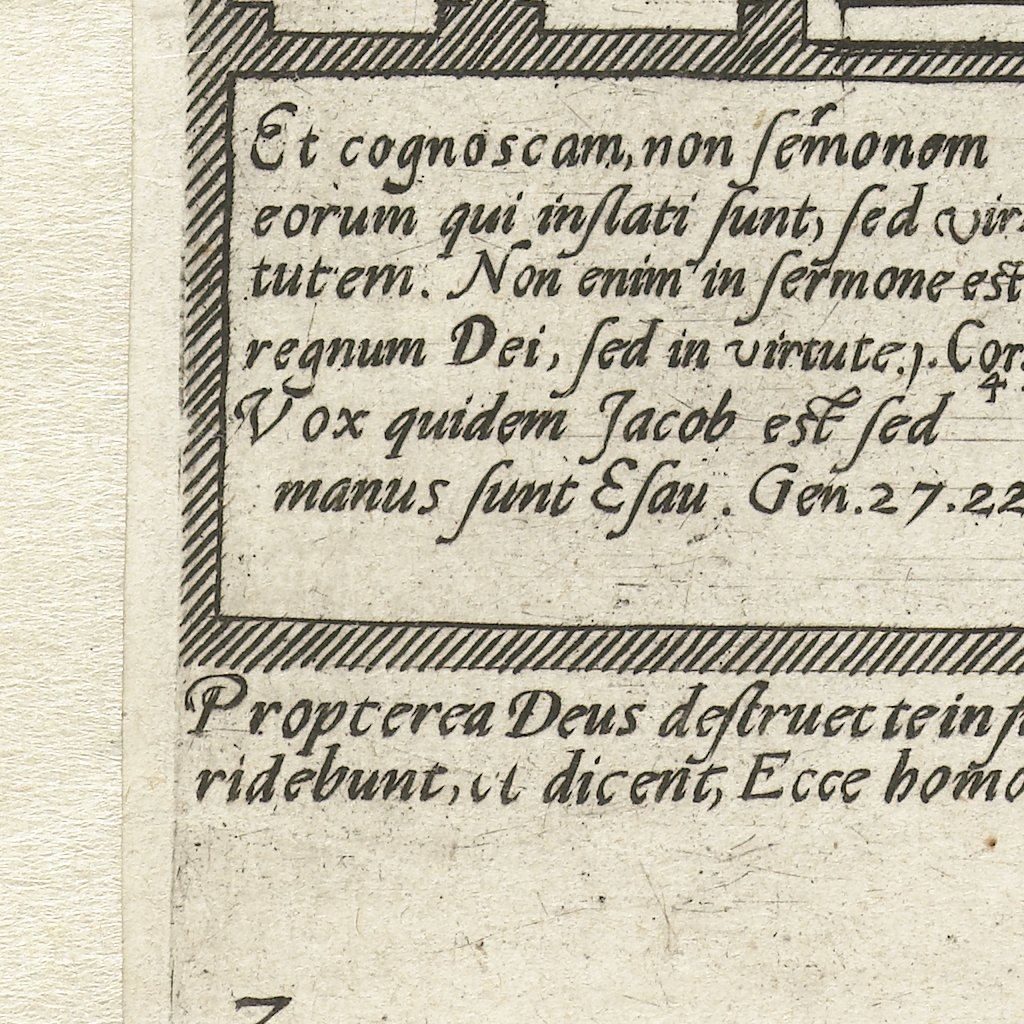 Et cognoscam, non sermonem
eorum qui inflati sunt, sed vir
tutem. Non enim in sermone est
regnum Dei, sed in virtute. 1. Cor.
4
Vox quidem Jacob est sed
manus sunt Esau. Gen. 27. 22
Propterea Deus destruet te in
ridebunt, et dicent, Ecce homo